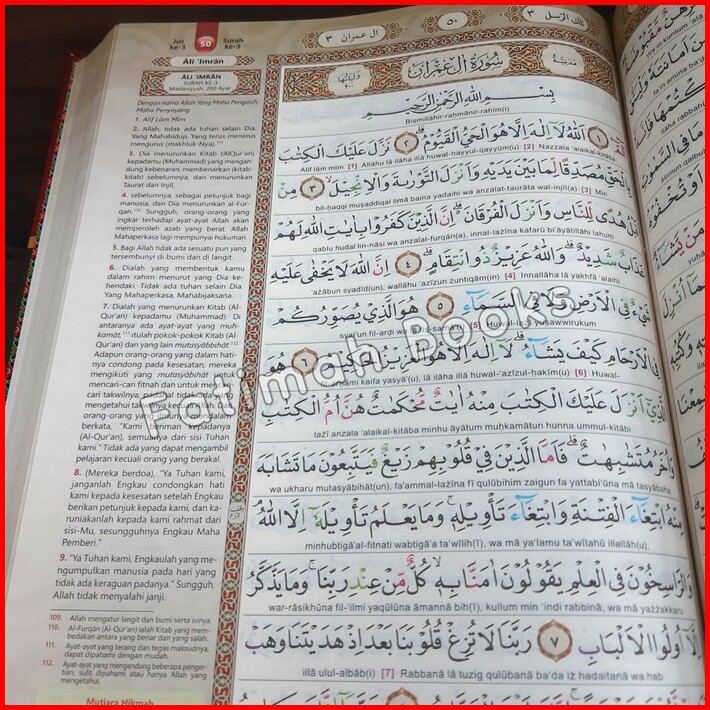 Juz
ke-3
50
Surah
ke-3
اٰل عمران ٣
٥٠
تلك الرسل ٣
Āli ‘Imrān
ĀLI ‘IMRĀN
SURAH KE-3
Madaniyyah, 200 Ayat
Dengan nama Allah Yang Maha Pengasih,
Maha Penyayang
1. Alif Lām Mīm.
2. Allah, tidak ada tuhan selain Dia.
Yang Mahahidup, Yang terus menerus
mengurus (makhluk-Nya).¹⁰⁹
3. Dia menurunkan Kitab (Al-Qur'an)
kepadamu (Muhammad) yang mengan-
dung kebenaran, membenarkan (kitab-
kitab) sebelumnya, dan menurunkan
Taurat dan Injil,
4. sebelumnya, sebagai petunjuk bagi
manusia, dan Dia menurunkan al-Fur-
qān.¹¹⁰ Sungguh, orang-orang yang
ingkar terhadap ayat-ayat Allah akan
memperoleh azab yang berat. Allah
Mahaperkasa lagi mempunyai hukuman.
5. Bagi Allah tidak ada sesuatu pun yang
tersembunyi di bumi dan di langit.
6. Dialah yang membentuk kamu
dalam rahim menurut yang Dia ke-
hendaki. Tidak ada tuhan selain Dia.
Yang Mahaperkasa, Mahabijaksana.
7. Dialah yang menurunkan Kitab (Al-
Qur'an) kepadamu (Muhammad). Di
antaranya ada ayat-ayat yang muh-
kamāt,¹¹¹ itulah pokok-pokok Kitab (Al-
Qur'an) dan yang lain mutasyābihāt.¹¹²
Adapun orang-orang yang dalam hati-
nya condong pada kesesatan, mereka
mengikuti yang mutasyābihāt untuk
mencari-cari fitnah dan untuk men
cari takwilnya,
mengetahui tak
orang-orang yang
berkata, "Kami beriman kepadanya
(Al-Qur'an), semuanya dari sisi Tuhan
kami." Tidak ada yang dapat mengambil
pelajaran kecuali orang yang berakal.
8. (Mereka berdoa), "Ya Tuhan kami,
janganlah Engkau condongkan hati
kami kepada kesesatan setelah Engkau
berikan petunjuk kepada kami, dan ka-
runiakanlah kepada kami rahmat dari
sisi-Mu, sesungguhnya Engkau Maha
Pemberi."
9. "Ya Tuhan kami, Engkaulah yang me-
ngumpulkan manusia pada hari yang
tidak ada keraguan padanya." Sungguh,
Allah tidak menyalahi janji.
109. Allah mengatur langit dan bumi serta isinya.
110. Al-Furqān (Al-Qur'an) ialah Kitab yang mem-
bedakan antara yang benar dan yang salah.
111. Ayat-ayat yang terang dan tegas maksudnya,
dapat dipahami dengan mudah.
112. Ayat-ayat yang mengandung beberapa penger-
tian, sulit dipahami atau hanya Allah yang
mengetahui.
Mutiara Hikmah
وَاٰيَاتُهَا ٢٠٠
سُوْرَةُ اٰلِ عِمْرَانَ
مَدَنِيَّةٌ
بِسْمِ اللّٰهِ الرَّحْمٰنِ الرَّحِيْمِ
Bismillāhir-raḥmānir-raḥīm(i)
١ اَللّٰهُ لَآ اِلٰهَ اِلَّا هُوَ الْحَيُّ الْقَيُّوْمُۗ ٢ نَزَّلَ عَلَيْكَ الْكِتٰبَ
Alif lām mīm [1] Allāhu lā ilāha illā huwal-ḥayyul-qayyūm(u) [2] Nazzala ‘alaikal-kitāba
بِالْحَقِّ مُصَدِّقًا لِّمَا بَيْنَ يَدَيْهِ وَاَنْزَلَ التَّوْرٰىةَ وَالْاِنْجِيْلَۙ ٣ مِنْ
bil-ḥaqqi muṣaddiqal limā baina yadaihi wa anzalat-taurāta wal-injīl(a) [3] Min
قَبْلُ هُدًى لِّلنَّاسِ وَاَنْزَلَ الْفُرْقَانَ ەۗ اِنَّ الَّذِيْنَ كَفَرُوْا بِاٰيٰتِ اللّٰهِ لَهُمْ
qablu hudal lin-nāsi wa anzalal-furqān(a), innal-lażīna kafarū bi'āyātillāhi lahum
عَذَابٌ شَدِيْدٌ ۗوَاللّٰهُ عَزِيْزٌ ذُو انْتِقَامٍۗ ٤ اِنَّ اللّٰهَ لَا يَخْفٰى عَلَيْهِ
‘ażābun syadīd(un), wallāhu ‘azīzun żuntiqām(in) [4] Innallāha lā yakhfā ‘alaihi
شَيْءٌ فِى الْاَرْضِ وَلَا فِى السَّمَاۤءِ ٥ هُوَ الَّذِيْ يُصَوِّرُكُمْ
syai'un fil-arḍi wa lā fis-samā'(i) [5] Huwal-lażī yuṣawwirukum
فِى الْاَرْحَامِ كَيْفَ يَشَاۤءُ ۗ لَآ اِلٰهَ اِلَّا هُوَ الْعَزِيْزُ الْحَكِيْمُ ٦ هُوَ
fil-arḥāmi kaifa yasyā'(u), lā ilāha illā huwal-‘azīzul-ḥakīm(u) [6] Huwal-
الَّذِيْٓ اَنْزَلَ عَلَيْكَ الْكِتٰبَ مِنْهُ اٰيٰتٌ مُّحْكَمٰتٌ هُنَّ اُمُّ الْكِتٰبِ
lażī anzala ‘alaikal-kitāba minhu āyātum muḥkamātun hunna ummul-kitābi
وَاُخَرُ مُتَشٰبِهٰتٌ ۗ فَاَمَّا الَّذِيْنَ فِيْ قُلُوْبِهِمْ زَيْغٌ فَيَتَّبِعُوْنَ مَا تَشَابَهَ
wa ukharu mutasyābihāt(un), fa'ammal-lażīna fī qulūbihim zaigun fa yattabi‘ūna mā tasyābaha
مِنْهُ ابْتِغَاۤءَ الْفِتْنَةِ وَابْتِغَاۤءَ تَأْوِيْلِهٖۚ وَمَا يَعْلَمُ تَأْوِيْلَهٗٓ اِلَّا اللّٰهُ
minhubtigā'al-fitnati wabtigā'a ta'wīlih(ī), wa mā ya‘lamu ta'wīlahū illallāh(u),
وَالرَّاسِخُوْنَ فِى الْعِلْمِ يَقُوْلُوْنَ اٰمَنَّا بِهٖۙ كُلٌّ مِّنْ عِنْدِ رَبِّنَا ۚ وَمَا يَذَّكَّرُ
war-rāsikhūna fil-‘ilmi yaqūlūna āmannā bih(ī), kullum min ‘indi rabbinā, wa mā yażżakkaru
اِلَّآ اُولُوا الْاَلْبَابِ ٧ رَبَّنَا لَا تُزِغْ قُلُوْبَنَا بَعْدَ اِذْ هَدَيْتَنَا وَهَبْ
illā ulul-albāb(i) [7] Rabbanā lā tuzig qulūbanā ba‘da iż hadaitanā wa hab
Fatimah Books